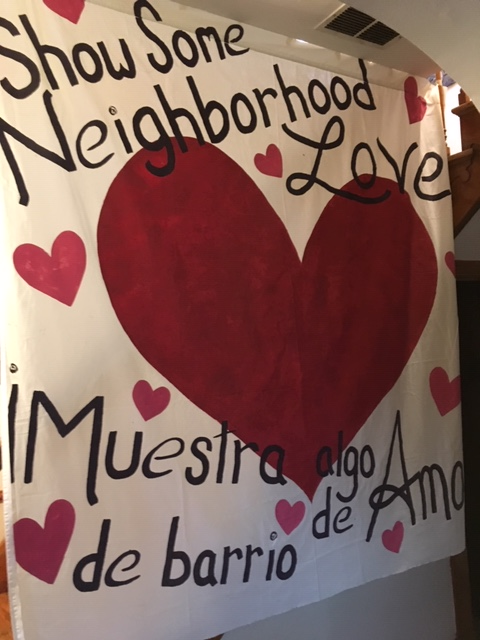 Show Some
Neighborhood
Love
¡Muestra algo
de Amo
de barrio